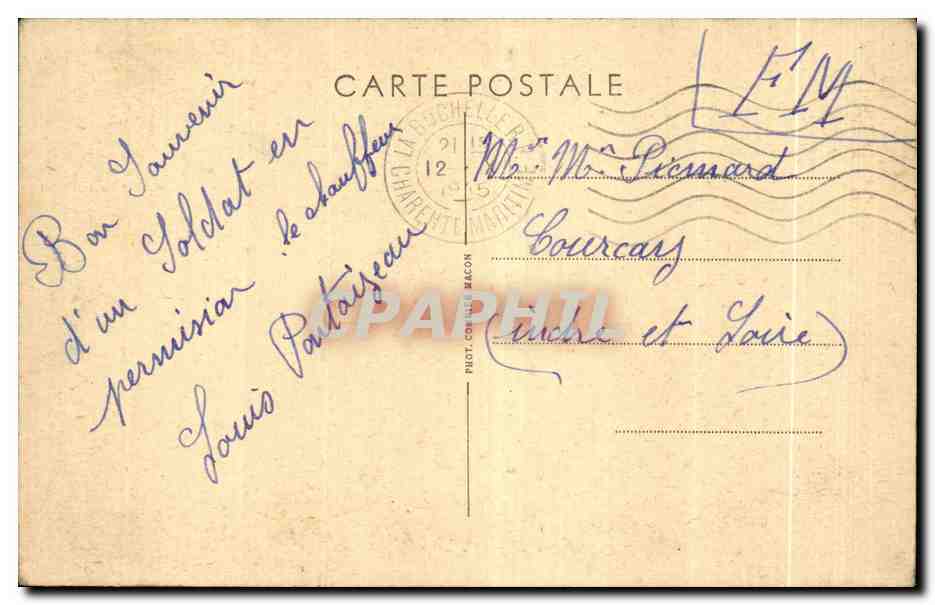 CARTE POSTALE
FM
Bon Souvenir
d'un Soldat en
permision le chauffeur
Louis Pontoizeau
LA ROCHELLE
12
CHARENTE MARITIME
Mr Picmard
Courcay
(indre et Loire)
PHOT. COMBIER MACON
CPAPHIL